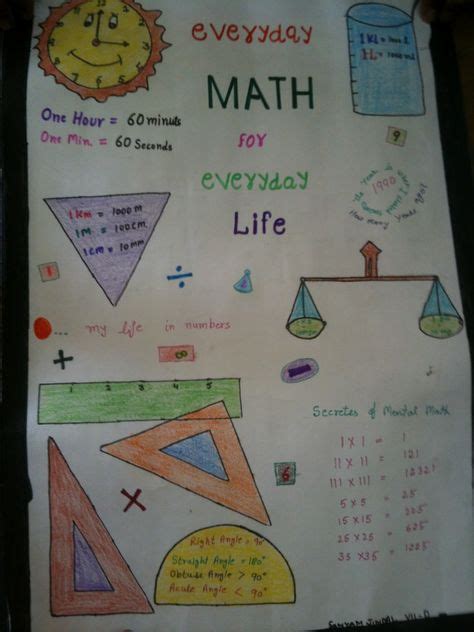 everyday
MATH
for
everyday
Life
One Hour = 60 minuts
One Min. = 60 Seconds
1KL = 1000 L
1L = 1000 mL
9
1KM = 1000M
1M = 100CM
1CM = 10MM
1990
How many years ago?
1
÷
2
... my life in numbers
+
8
-
1 2 3 4 5
Secretes of Mental Math
1 X 1 = 1
11 X 11 = 121
111 X 111 = 12321
5 x 5 = 25
15 x 15 = 225
25 x 25 = 625
35 x 35 = 1225
6
×
Right Angle = 90°
Straight Angle = 180°
Obtuse Angle > 90°
Acute Angle < 90°
VII-D